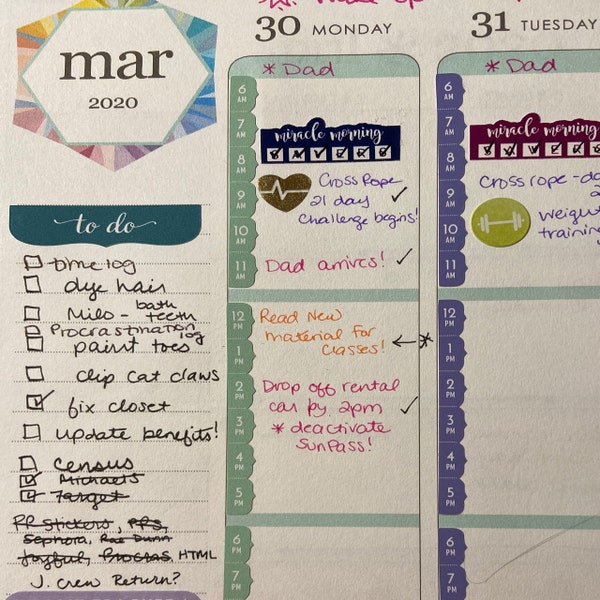 mar
2020
to do
time log
dye hair
Milo - bath
teeth
Procrastination log
paint toes
clip cat claws
fix closet
update benefits!
Census
Michaels
Target
PP Stickers, PPS,
Sephora, Rae Dunn
Joyful, Procras, HTML
J. Crew Return?
30 MONDAY
* Dad
6 AM
7 AM
miracle morning
S A V E R S
8 AM
Cross Rope
9 AM
21 day
Challenge begins!
10 AM
11 AM
Dad arrives!
12 PM
Read New
material for
classes!
1 PM
2 PM
Drop off rental
car by 2pm
3 PM
* deactivate
SunPass!
4 PM
5 PM
6 PM
7 PM
31 TUESDAY
* Dad
6 AM
7 AM
miracle morning
S A V E R S
8 AM
Cross rope - da
9 AM
2
Weight
training
10 AM
11 AM
12 PM
1 PM
2 PM
3 PM
4 PM
5 PM
6 PM
7 PM